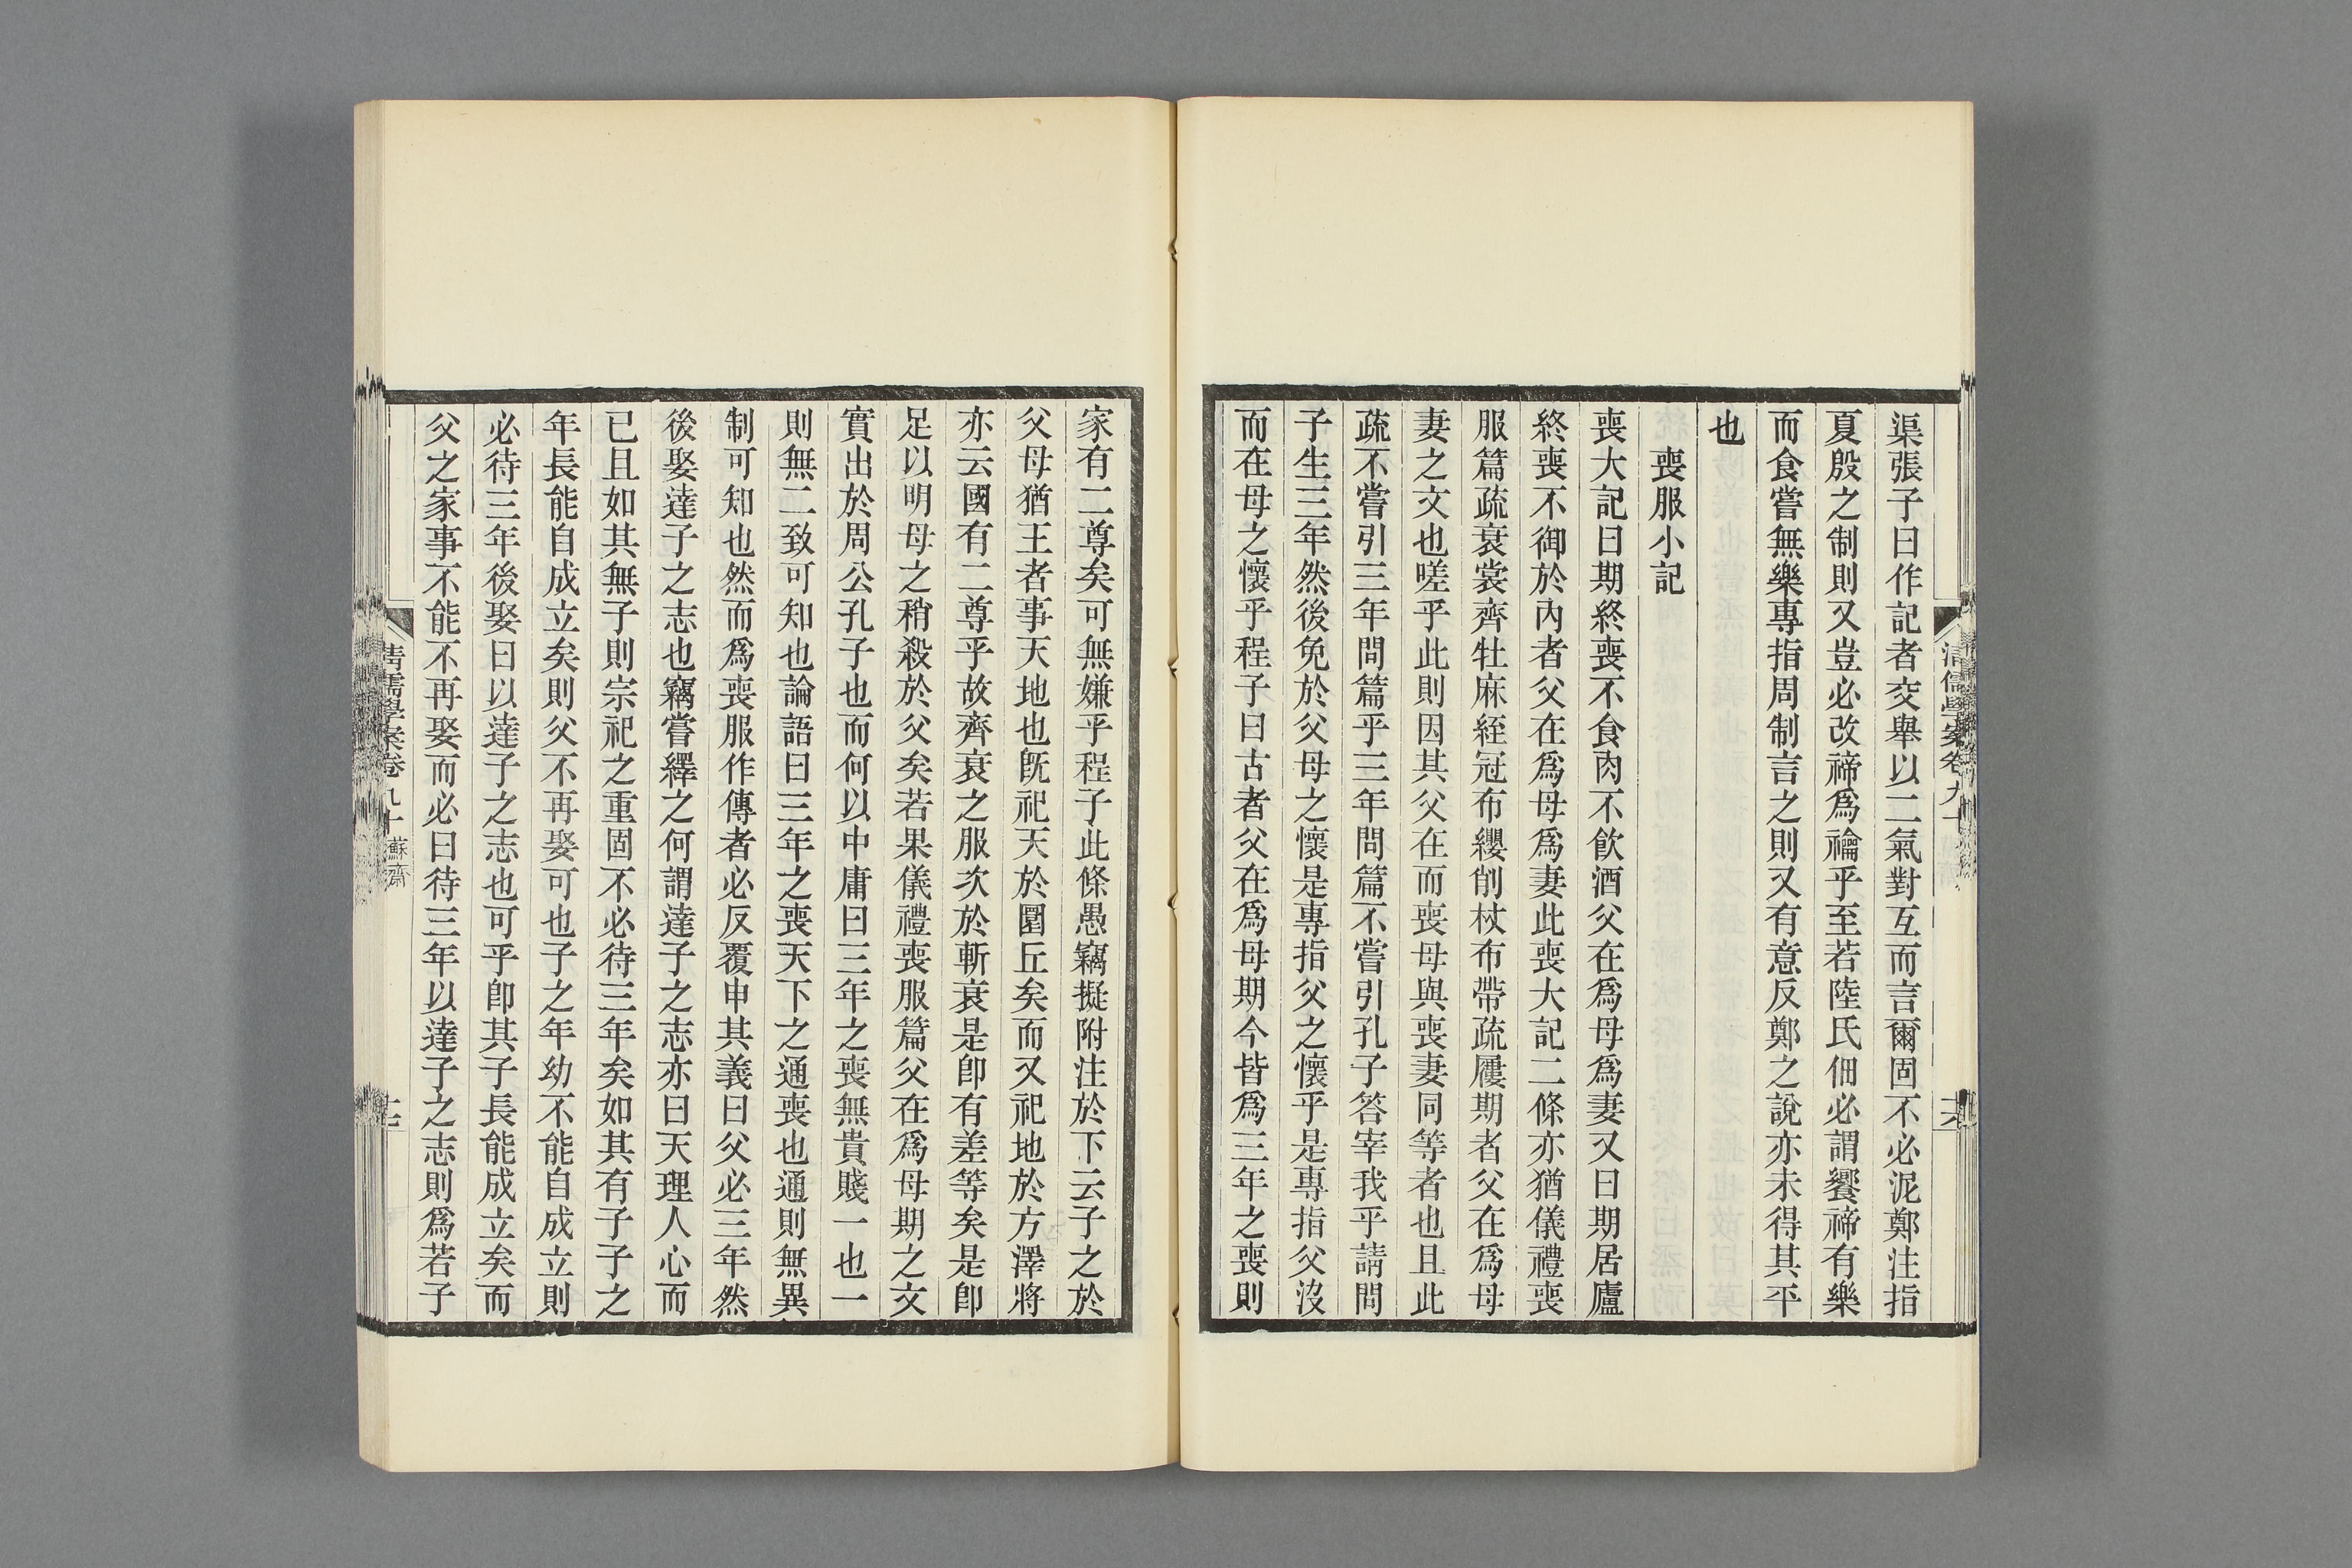 渠張子曰作記者交舉以二氣對互而言爾固不必泥鄭注指
夏殷之制則又豈必改禘爲禴乎至若陸氏佃必謂饗禘有樂
而食嘗無樂專指周制言之則又有意反鄭之說亦未得其平
也
喪服小記
喪大記曰期終喪不食肉不飮酒父在爲母爲妻又曰期居廬
終喪不御於內者父在爲母爲妻此喪大記二條亦猶儀禮喪
服篇疏衰裳齊牡麻絰冠布纓削杖布帶疏屨期者父在爲母
妻之文也嗟乎此則因其父在而喪母與喪妻同等者也且此
疏不嘗引三年問篇乎三年問篇不嘗引孔子答宰我乎請問
子生三年然後免於父母之懷是專指父之懷乎是專指父沒
而在母之懷乎程子曰古者父在爲母期今皆爲三年之喪則
家有二尊矣可無嫌乎程子此條愚竊擬附注於下云子之於
父母猶王者事天地也旣祀天於圜丘矣而又祀地於方澤將
亦云國有二尊乎故齊衰之服次於斬衰是卽有差等矣是卽
足以明母之稍殺於父矣若果儀禮喪服篇父在爲母期之文
實出於周公孔子也而何以中庸曰三年之喪無貴賤一也一
則無二致可知也論語曰三年之喪天下之通喪也通則無異
制可知也然而爲喪服作傳者必反覆申其義曰父必三年然
後娶達子之志也竊嘗繹之何謂達子之志亦曰天理人心而
已且如其無子則宗祀之重固不必待三年矣如其有子子之
年長能自成立矣則父不再娶可也子之年幼不能自成立則
必待三年後娶曰以達子之志也可乎卽其子長能成立矣而
父之家事不能不再娶而必曰待三年以達子之志則爲若子
清儒學案卷九十 蘇齋